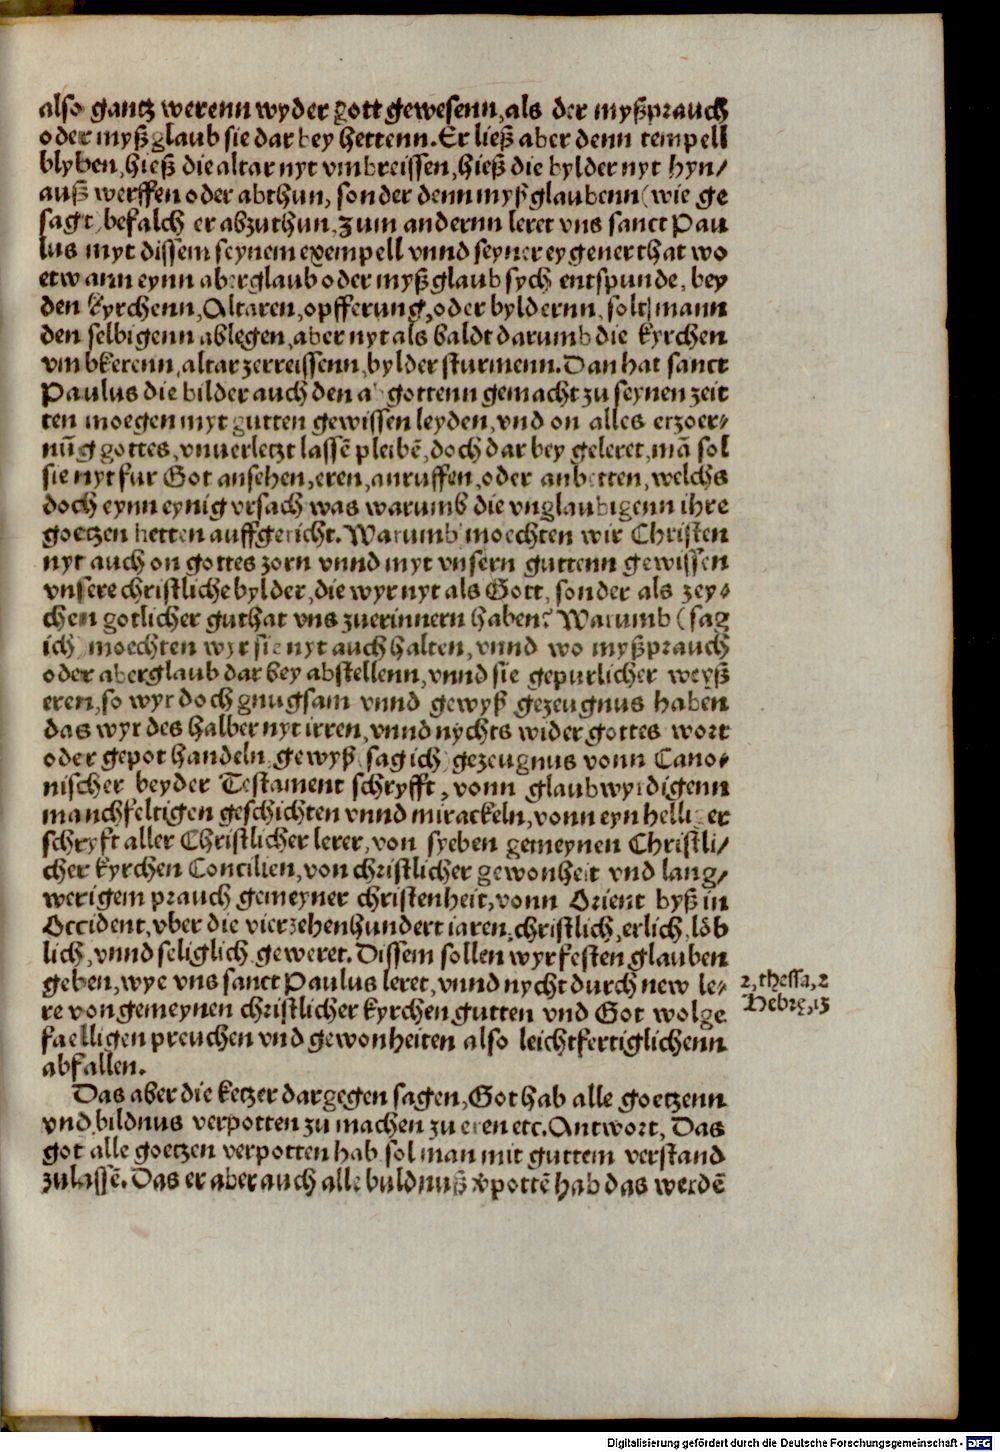 also gantz werenn wyder gott gewesenn, als der myßprauch
oder myßglaub sie dar bey hettenn. Er ließ aber denn tempell
blyben, hieß die altar nyt vmbreissen, hieß die bylder nyt hyn/
auß werffen oder abthun, sonder denn myßglaubenn (wie ge
sagt) befalch er abzuthun, Zum andernn leret vns sanct Pau
lus myt dissem seynem exempell vnnd seyner eygener that wo
etwann eynn aberglaub oder myßglaub sych entspunde, bey
den kyrchenn, Altaren, opfferung, oder byldernn, solt mann
den selbigenn ablegen, aber nyt als baldt darumb die kyrchen
vmbkerenn, altar zerreissenn, bylder sturmenn. Dan hat sanct
Paulus die bilder auch den abgottenn gemacht zu seynen zeit
ten moegen myt gutten gewissen leyden, vnd on alles erzoer⸗
nūg gottes, vnuerletzt lassē pleibē, doch dar bey geleret, mā sol
sie nyt fur Got ansehen, eren, anruffen, oder anbetten, welchs
doch eynn eynig vrsach was warumb die vnglaubigenn ihre
goetzen hetten auffgericht. Warumb moechten wir Christen
nyt auch on gottes zorn vnnd myt vnsern guttenn gewissen
vnsere christliche bylder, die wyr nyt als Gott, sonder als zey⸗
chen gotlicher guthat vns zuerinnern haben? Warumb (sag
ich) moechten wyr sie nyt auch halten, vnnd wo myßprauch
oder aberglaub dar bey abstellenn, vnnd sie gepurlicher weyß
eren, so wyr doch gnugsam vnnd gewyß gezeugnus haben
das wyr des halber nyt irren, vnnd nychts wider gottes wort
oder gepot handeln, gewyß (sag ich) gezeugnus vonn Cano⸗
nischer beyder Testament schryfft, vonn glaubwyrdigenn
manchfeltigen geschichten vnnd mirackeln, vonn eynhelliger
schryft aller Christlicher lerer, von syeben gemeynen Christli/
cher kyrchen Concilien, von christlicher gewonheit vnd lang/
werigem prauch gemeyner christenheit, vonn Orient byß in
Occident, vber die vierzehenhundert iaren, christlich, erlich, löb
lich, vnnd seliglich geweret. Dissem sollen wyr festen glauben
geben, wye vns sanct Paulus leret, vnnd nycht durch new le⸗
re von gemeynen christlicher kyrchen gutten vnd Got wolge
faelligen preuchen vnd gewonheiten also leichtfertiglichenn
abfallen.
2, thessa, 2
Hebrę, 13
Das aber die ketzer dargegen sagen, Got hab alle goetzenn
vnd bildnus verpotten zu machen zu eren etc. Antwort, Das
got alle goetzen verpotten hab sol man mit guttem verstand
zulassē. Das er aber auch alle buldnuß v̄pottē hab das werdē
Digitalisierung gefördert durch die Deutsche Forschungsgemeinschaft - DFG